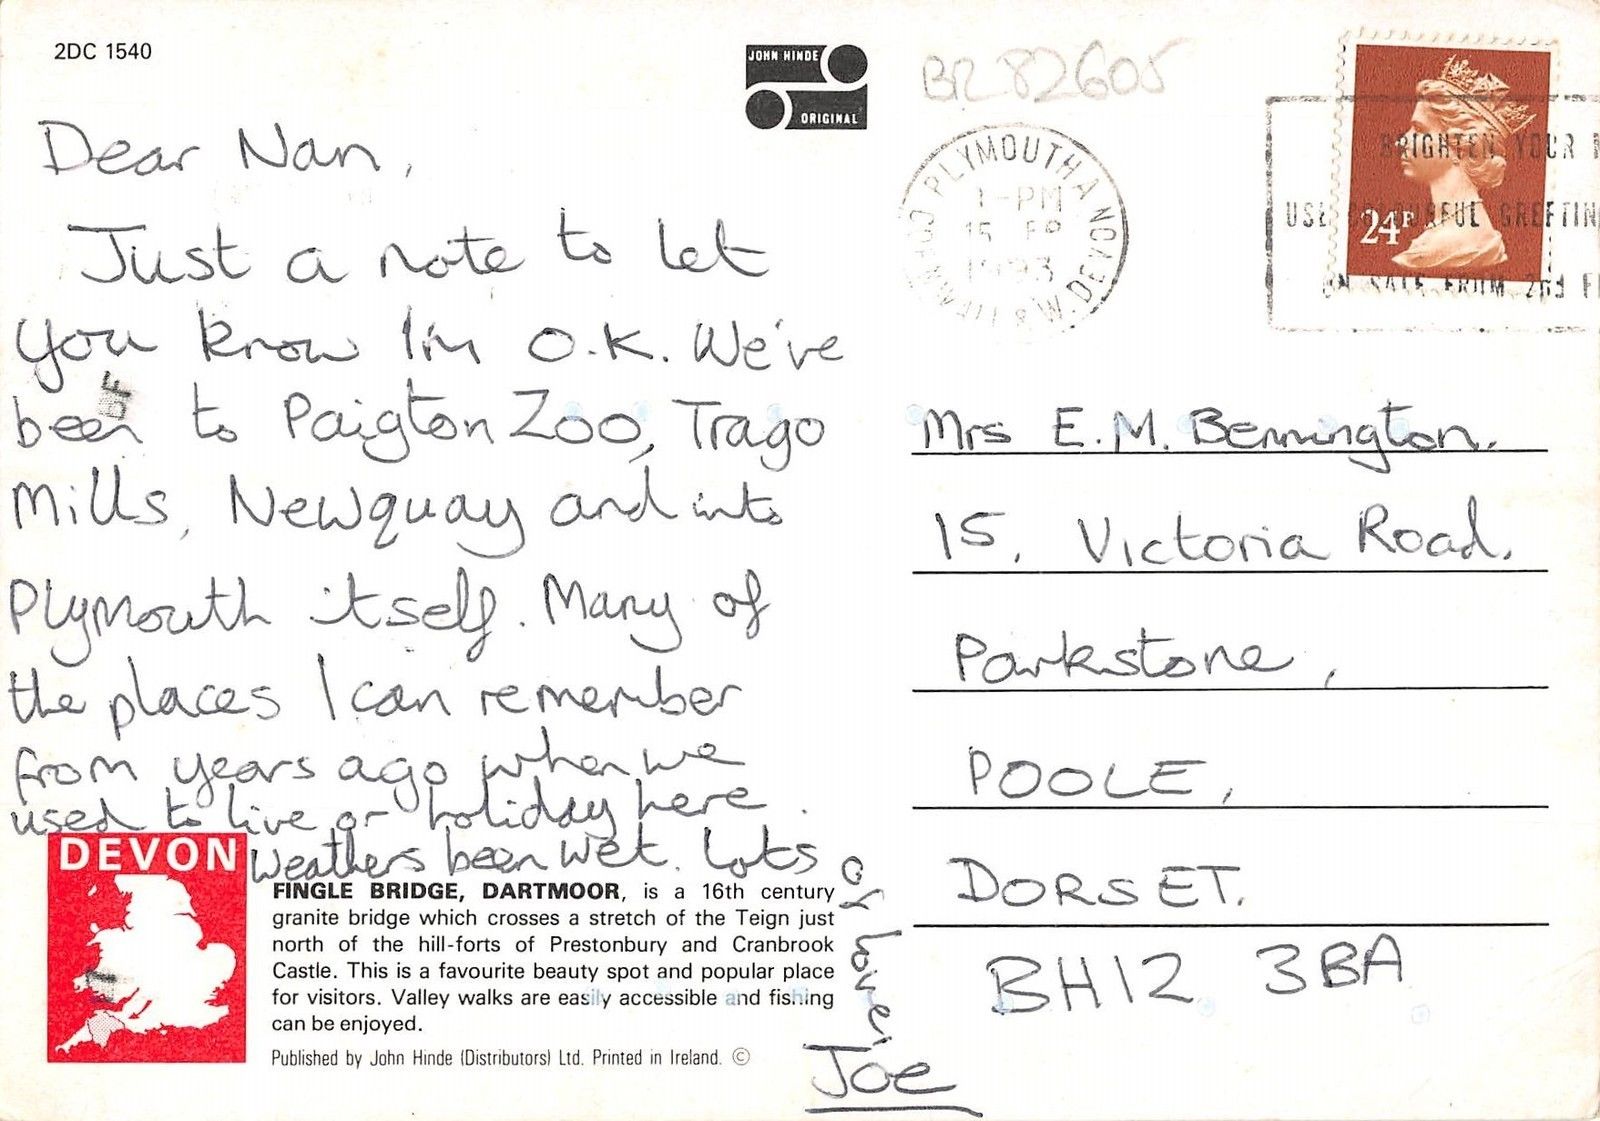 2DC 1540
JOHN HINDE
ORIGINAL
BR 82605
PLYMOUTH AND W. DEVON
1-PM
15 FP
1993
BRIGHTEN YOUR
USE COLOURFUL GREETIN
ON SALE FROM
24P
Dear Nan,
Just a note to let
you know I'm O.K. We've
been to Paigton Zoo, Trago
Mills, Newquay and into
Plymouth itself. Many of
the places I can remember
from years ago when we
used to live or holiday here.
Weathers been wet. Lots
of love,
Joe
Mrs E. M. Bennington.
15, Victoria Road,
Parkstone,
POOLE,
DORSET.
BH12 3BA
DEVON
FINGLE BRIDGE, DARTMOOR, is a 16th century
granite bridge which crosses a stretch of the Teign just
north of the hill-forts of Prestonbury and Cranbrook
Castle. This is a favourite beauty spot and popular place
for visitors. Valley walks are easily accessible and fishing
can be enjoyed.
Published by John Hinde (Distributors) Ltd. Printed in Ireland. ©